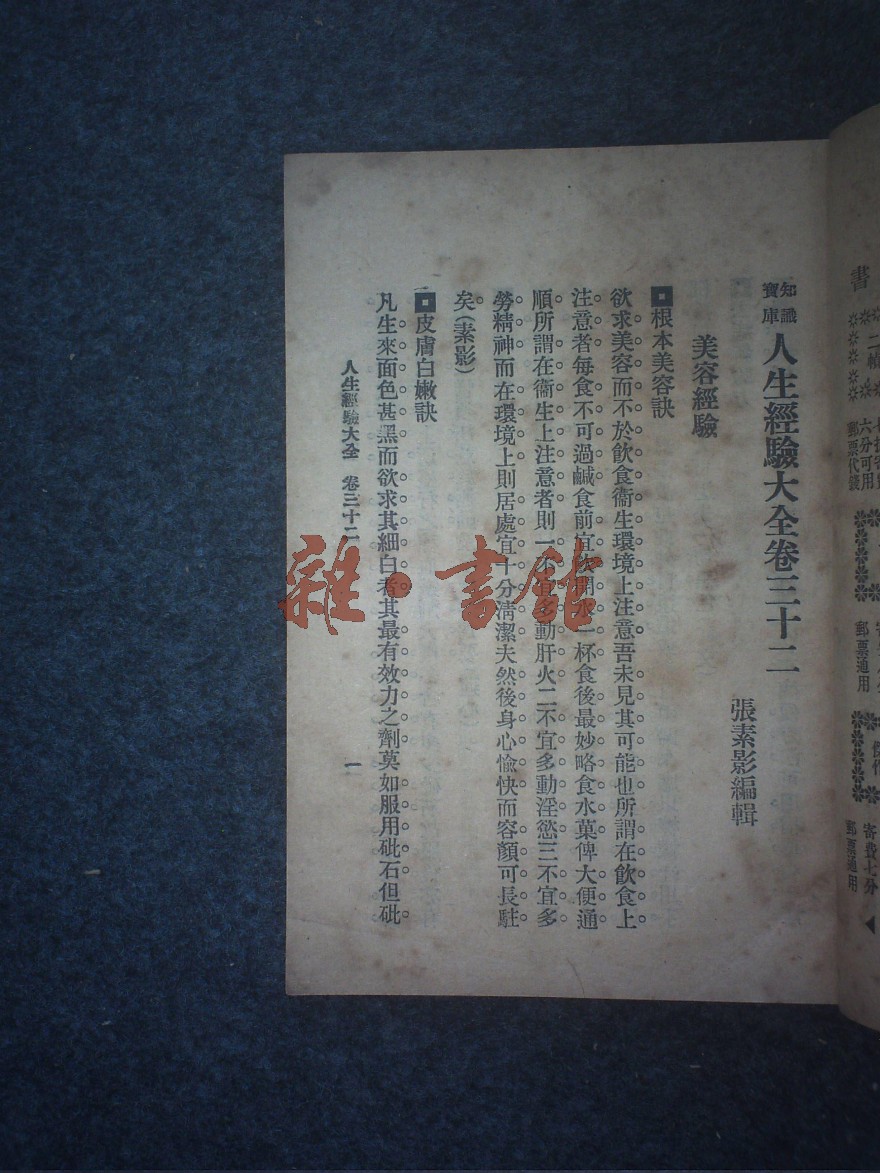 知識
寶庫
人生經驗大全卷三十二
張素影編輯
美容經驗
根本美容訣
欲求美容而不於飲食衞生環境上注意吾未見其可能也所謂在飲食上
注意者每食不可過鹹食前宜飲開水一杯食後最妙略食水菓俾大便通
順所謂在衞生上注意者則一不宜多動肝火二不宜多動淫慾三不宜多
勞精神而在環境上則居處宜十分清潔夫然後身心愉快而容顏可長駐
矣(素影)
皮膚白嫩訣
凡生來面色甚黑而欲求其細白者其最有效力之劑莫如服用砒石但砒
人生經驗大全 卷三十二 一
書
六分可用
郵票代錢
郵票通用
寄費七分
郵票通用
雜·書館